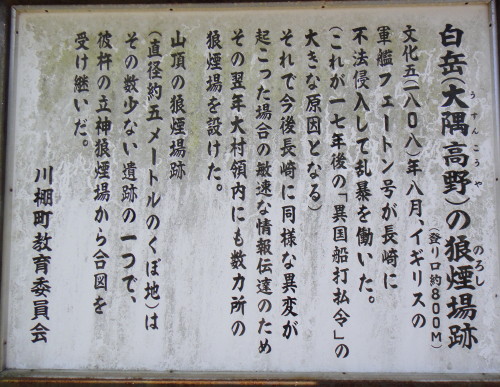 白岳(大隅高野)の狼煙場跡
うすんこうや
のろし
(登り口約800M)
文化五(一八〇八)年八月、イギリスの
軍艦フェートン号が長崎に
不法侵入して乱暴を働いた。
(これが一七年後の「異国船打払令」の
大きな原因となる)
それで今後長崎に同様な異変が
起こった場合の敏速な情報伝達のため
その翌年大村領内にも数カ所の
狼煙場を設けた。
山頂の狼煙場跡
(直径約五メートルのくぼ地)は
その数少ない遺跡の一つで、
彼杵の立神狼煙場から合図を
受け継いだ。
川棚町教育委員会